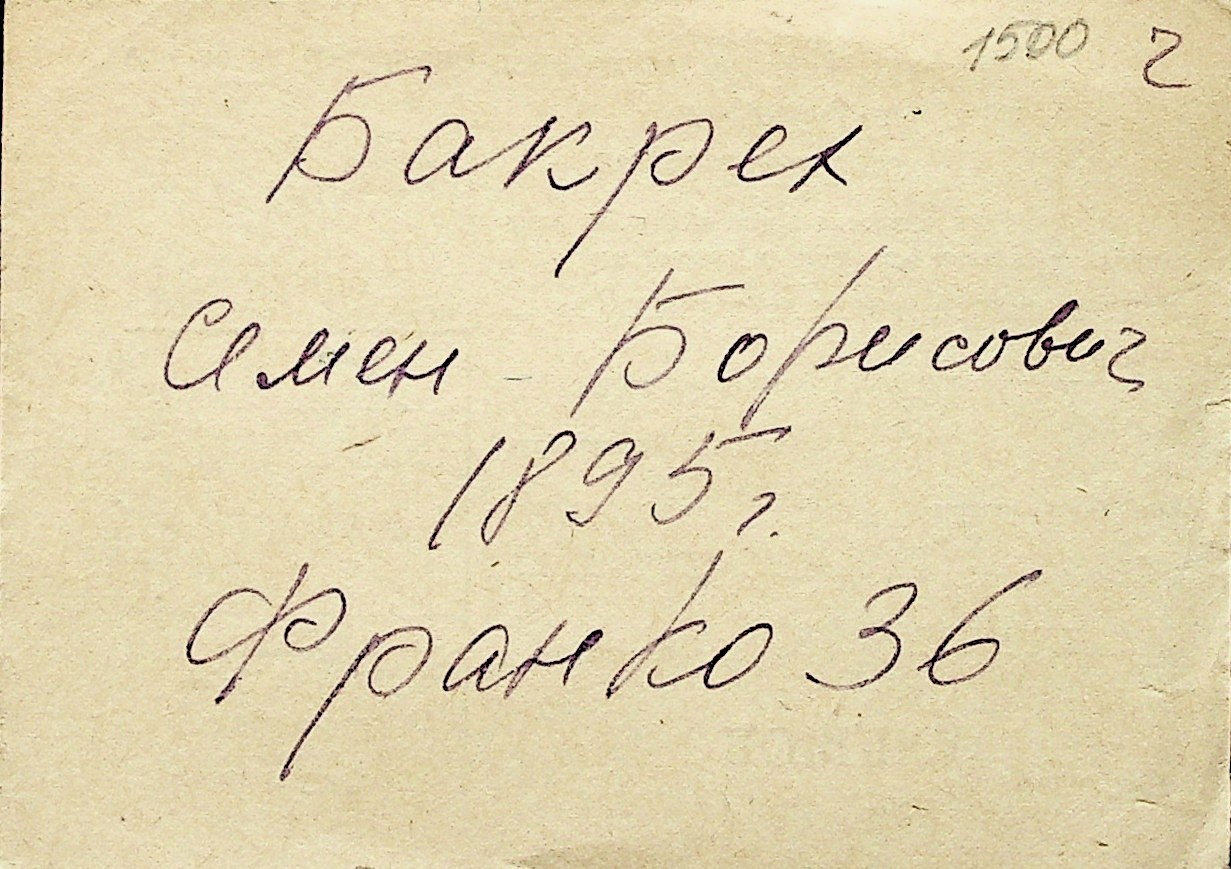 1500 ч
Бакрех
Семен Борисович
1895 г.
Франко 36